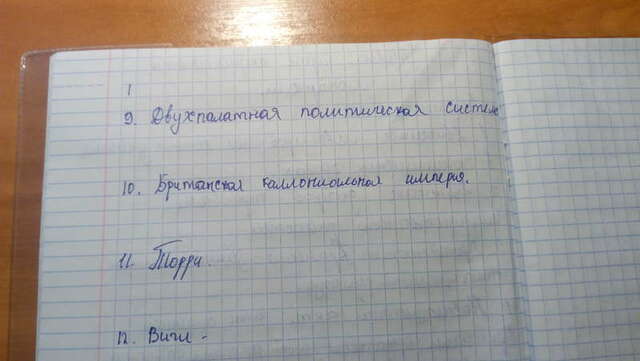 1
9. Двухпалатная политическая система
10. Британская каллониальная империя.
11. Торри.
12. Виги -